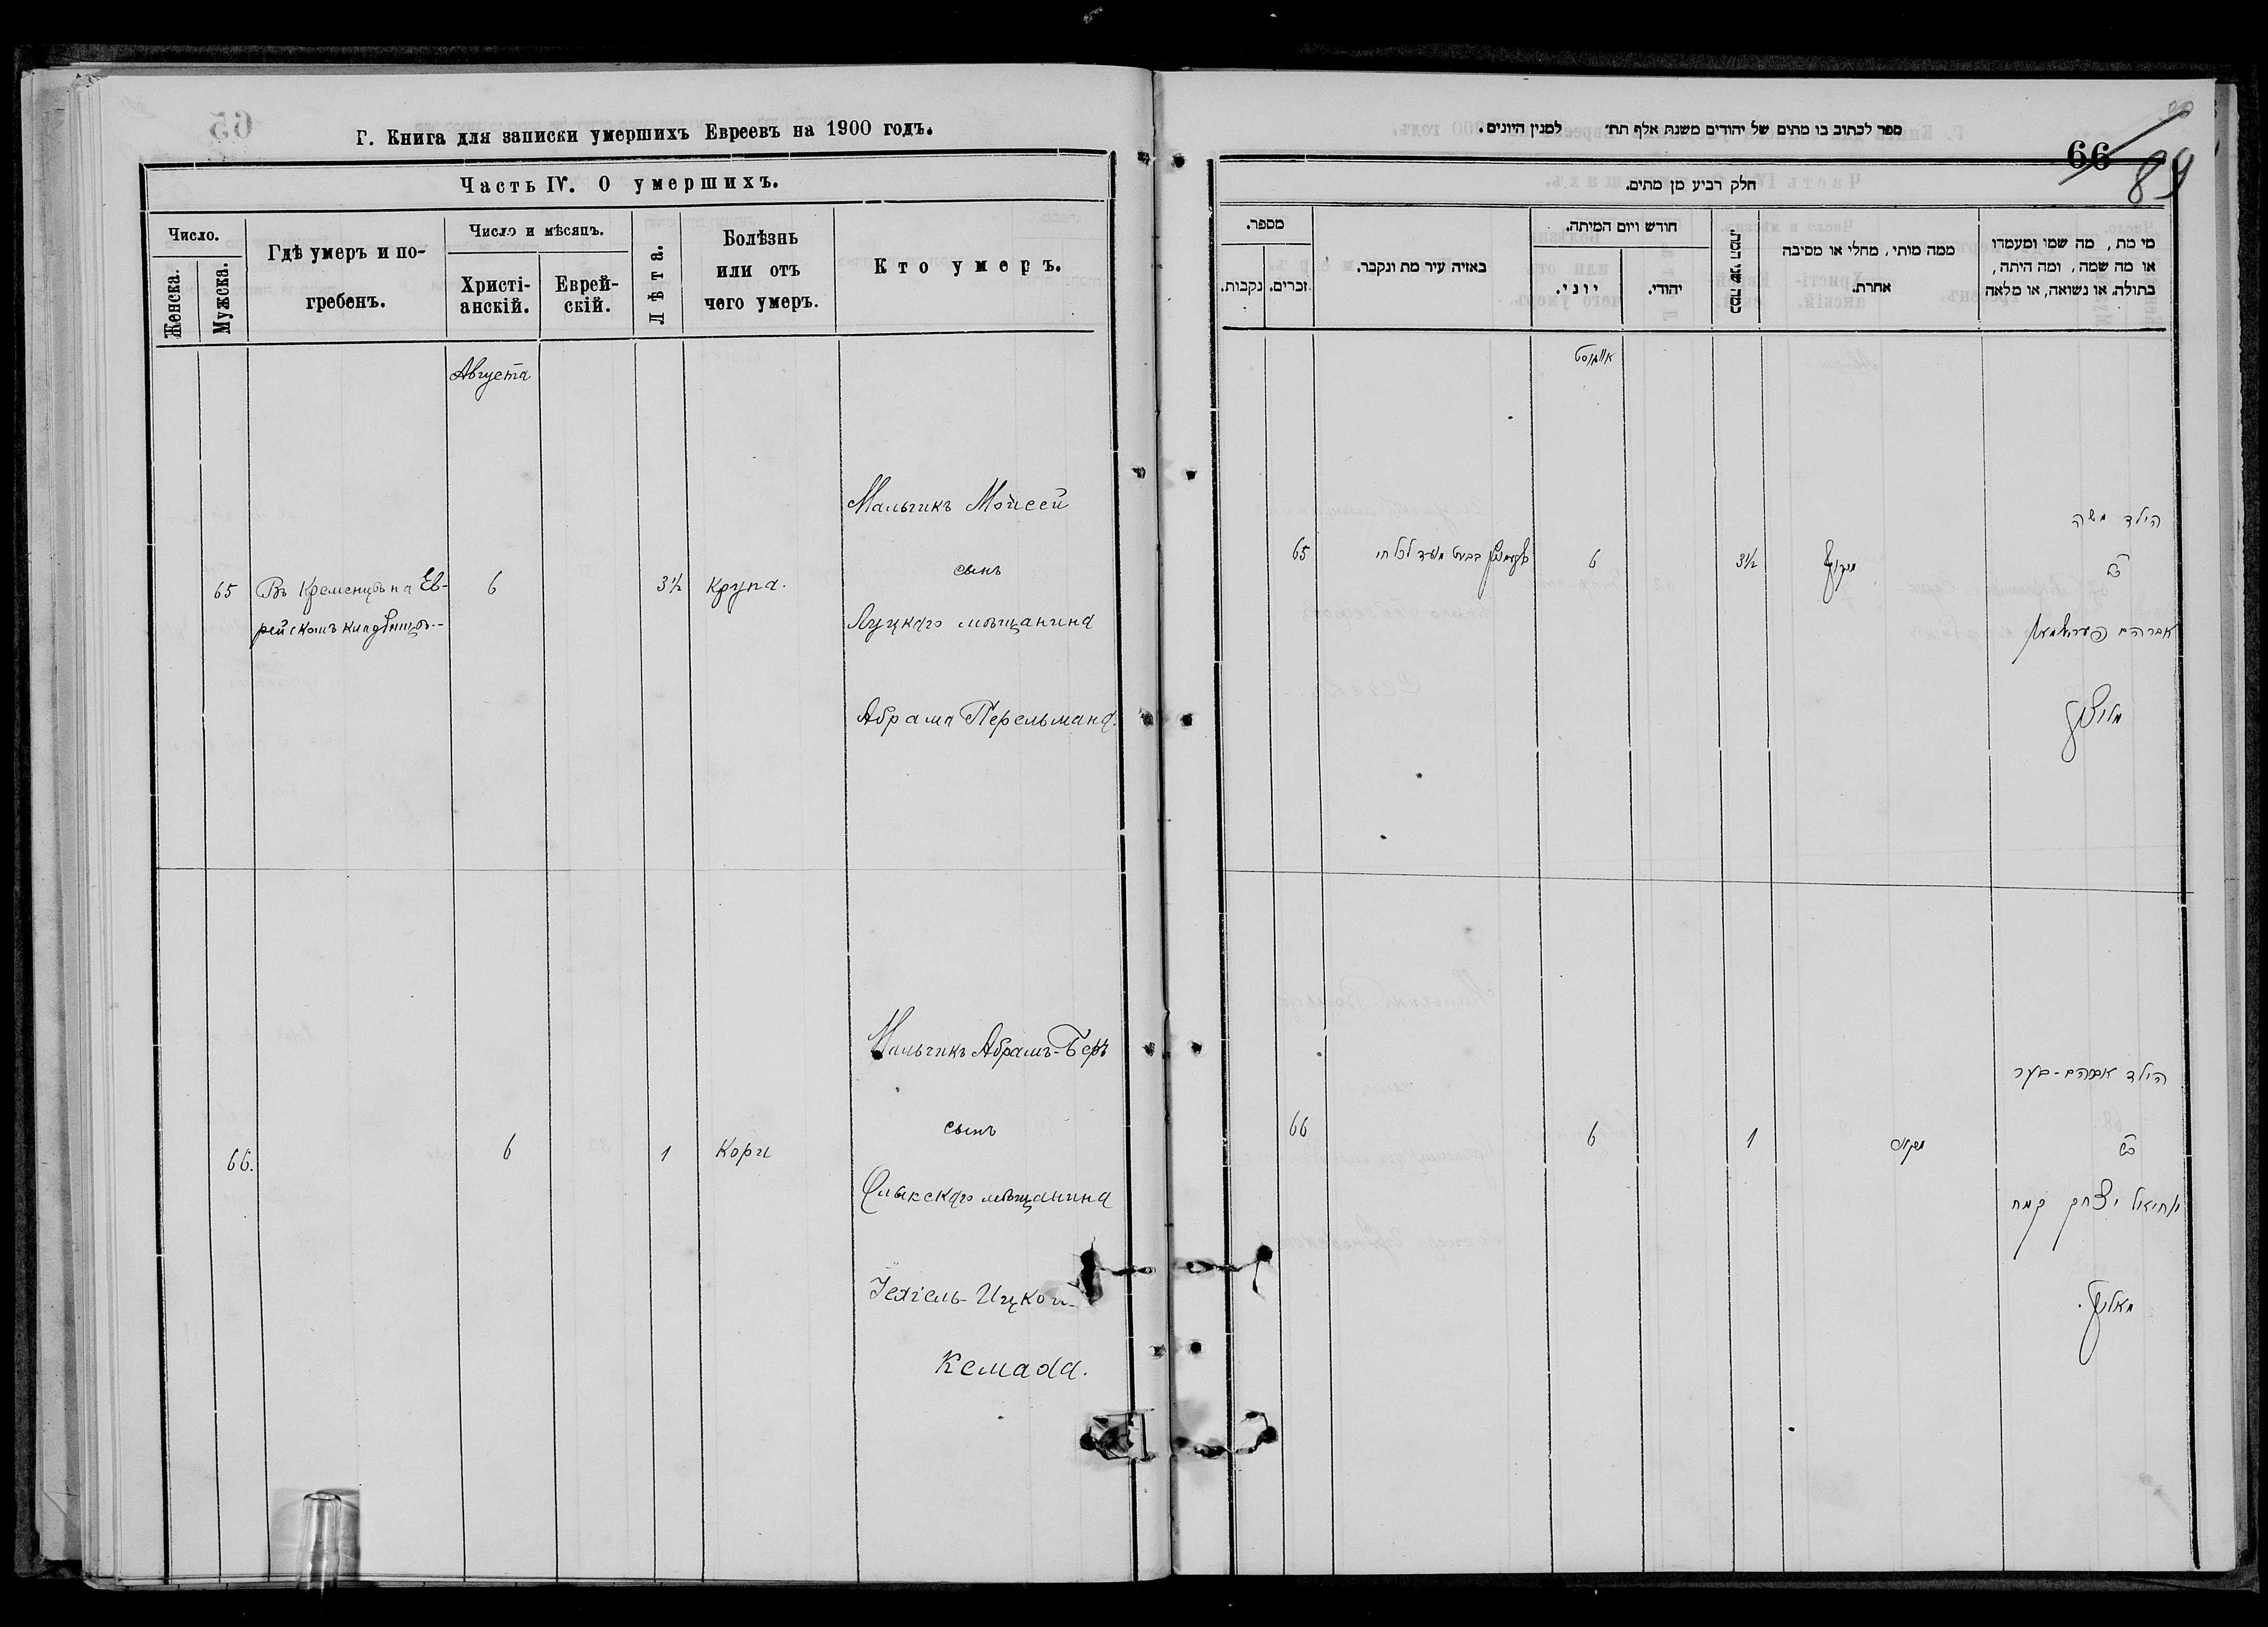 Г. Книга для записки умершихъ Евреевъ на 1900 годъ.
Часть IV. О умершихъ.
Число.
Женска.
Мужска.
Гдѣ умеръ и по-
гребенъ.
Число и мѣсяцъ.
Христі-
анскій.
Еврей-
скій.
Лѣта.
Болѣзнь
или отъ
чего умеръ.
Кто умеръ.
Августа
65
Въ Кременцѣ на Ев-
рейскомъ кладбищѣ
6
3½
крупа.
Мальчикъ Мойсей
сынъ
Луцкаго мѣщанина
Абрама Перельмана.
66.
6
1
кори
Мальчикъ Абрамъ-Беръ
сынъ
Олыкскаго мѣщанина
Іехіель-Ицкои
Кемаха.
ספר לכתוב בו מתים של יהודים משנת אלף תת׳ למנין היונים.
66
89
חלק רביע מן מתים.
מספר.
נקבות.
זכרים.
באיזה עיר מת ונקבר.
חודש ויום המיתה.
יוני.
יהודי.
כמה שני המת.
ממה מותי, מחלי או מסיבה
אחרת.
מי מת, מה שמו ומעמדו
או מה שמה, ומה היתה,
בתולה, או נשואה, או מלאה
אויגוסט
65
בבית מועד לכל חי
6
3½
הילד משה
בן
אברהם פערילמאן
מלוצק
66
6
1
הילד אברהם-בער
בן
יחיאל יצחק קמח
מאליק.